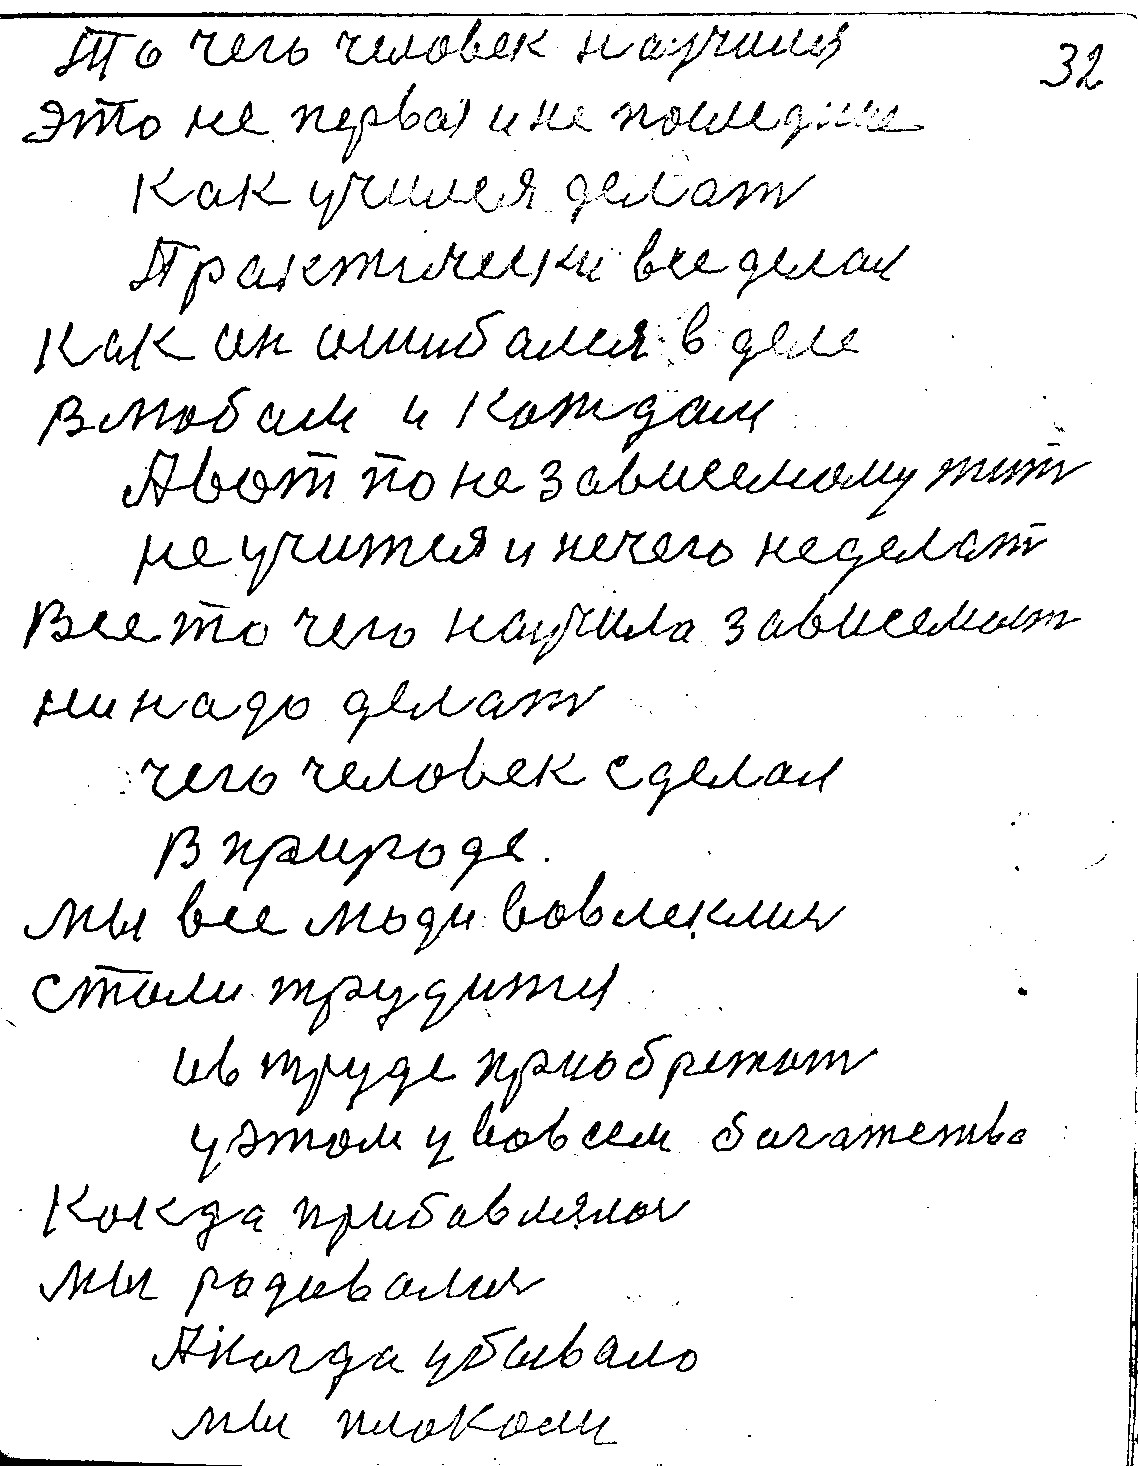 То чего человек научился
32
это не первая и не последние
Как учился делат
Практически все делал
Как он ошибался в деле
В любом и каждом
А вот по не зависемому жит
не учится и нечего не делат
Все то чего научила зависемост
ни надо делат
чего человек сделал
В природе.
мы все люди вовлеклис
стали трудится
и в труде приобретат
у этом у во всем багатства
Кокда прибавлялос
мы радовалис
А когда убывало
мы плакали